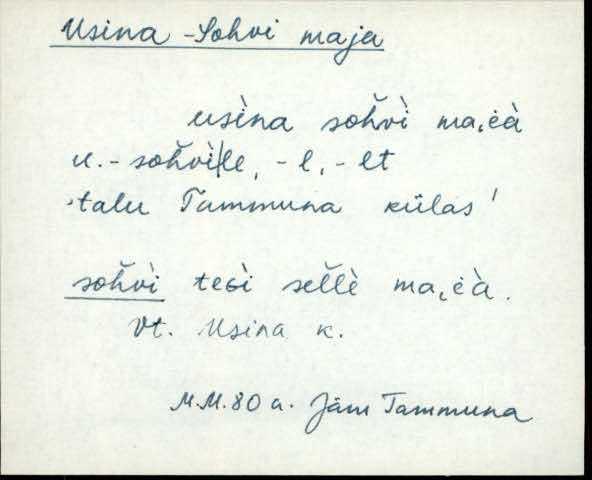 Usina-Sohvi maja
usìna soȟvì ma,ėà
u.-soȟvì|le, -l, -lt
talu Tammuna külas
soȟvì teGì sellè ma,ėà.
Vt. Usina k.
M.M. 80 a. Jäm Tammuna